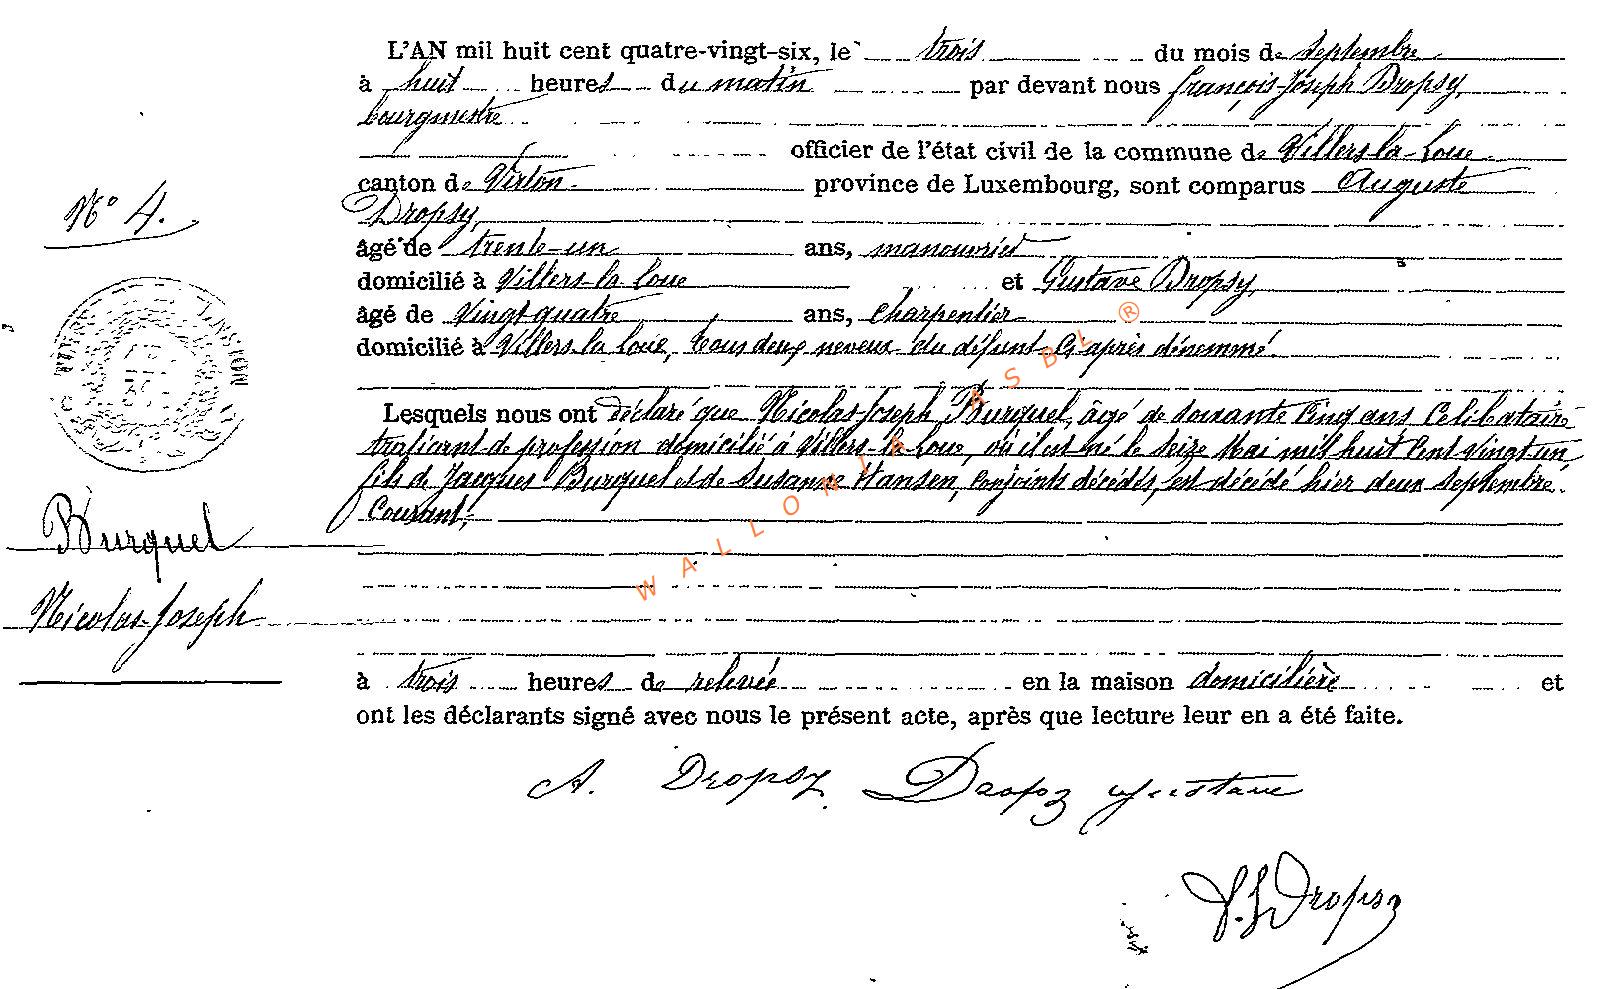 L'AN mil huit cent quatre-vingt-six, le trois du mois de septembre
à huit heures du matin par devant nous françois-Joseph Dropsy,
bourgmestre
officier de l'état civil de la commune de Villers-la-Loue
canton de Virton province de Luxembourg, sont comparus Auguste
Dropsy,
âgé de trente-un ans, manouvrier
domicilié à Villers-la-loue et Gustave Dropsy,
âgé de vingt-quatre ans, charpentier
domicilié à Villers-la-loue, tous deux neveux du défunt ci après dénommé.
Lesquels nous ont déclaré que Nicolas-Joseph Burquel, âgé de soixante cinq ans Celibataire
trafiquant de profession domicilié à Villers-la-Loue, où il est né le seize Mai mil huit Cent vingt un
fils de Jacques Burquel et de Susanne Hansen, conjoints décédés, est décédé hier deux septembre
Courant,
à trois heures de relevée en la maison domicilière et
ont les déclarants signé avec nous le présent acte, après que lecture leur en a été faite.
A. Dropsy Dropsy Gustave
F. J Dropsy
N° 4.
Burquel
Nicolas-Joseph
WALLONIA ASBL ®